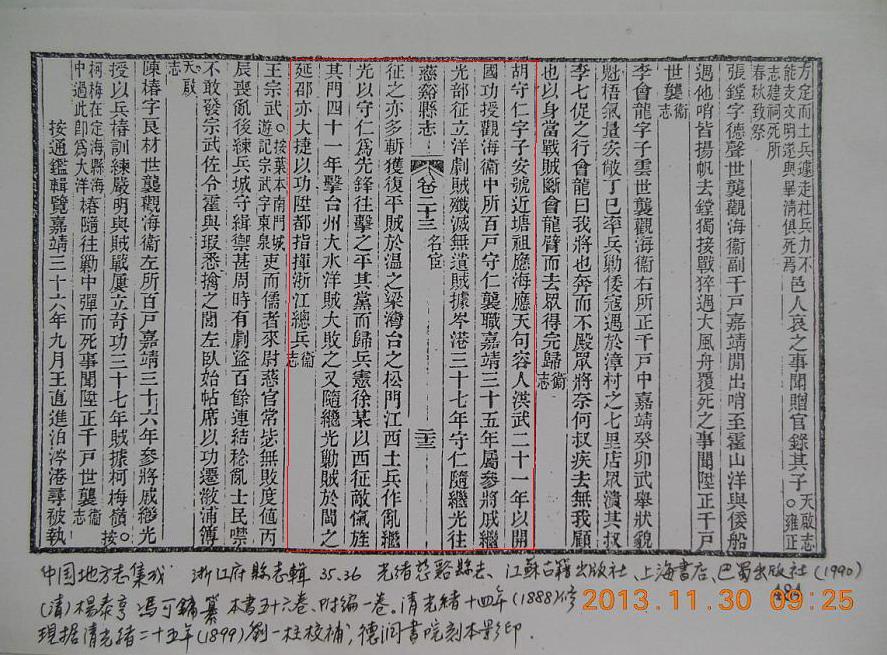 方定而土兵遽走杜兵力不能支文明遂與畢清俱死焉邑人哀之事聞贈官錄其子天啟志○雍正
志建祠死所春秋致祭
張鏜字德聲世襲觀海衞副千戸嘉靖閒出哨至霍山洋與倭船
遇他哨皆揚帆去鏜獨接戰猝遇大風舟覆死之事聞陞正千戸
世襲衞志
李會龍字子雲世襲觀海衞右所正千戸中嘉靖癸卯武舉狀貌
魁梧氣量安敞丁巳率兵勦倭寇遇於漳村之七里店眾潰其叔
李七促之行會龍曰我將也奔而不殿眾將奈何叔疾去無我顧
也以身當戰賊斷會龍臂而去眾得完歸衞志
胡守仁字子安號近塘祖應海應天句容人洪武二十一年以開
國功授觀海衞中所百戸守仁襲職嘉靖三十五年屬參將戚繼
光部征立洋劇賊殲滅無遺賊據岑港三十七年守仁隨繼光往
慈谿縣志 卷二十三 名宦 三
征之亦多斬獲復平賊於温之梁灣台之松門江西土兵作亂繼
光以守仁為先鋒往擊之平其黨而歸兵憲徐某以西征敵愾旌
其門四十一年擊台州大水洋賊大敗之又隨繼光勦賊於閩之
延邵亦大捷以功陞都指揮浙江總兵衞志
王宗武○按葉本南門城遊記宗武字東泉吏而儒者來尉慈官常毖無敗度値丙
辰喪亂後練兵城守緝禦甚周時有劇盜百餘連結稔亂士民噤
不敢發宗武佐令霍與瑕悉擒之閭左臥始帖席以功遷敝浦簿
天啟志
陳椿字艮材世襲觀海衞左所百戸嘉靖三十六年參將戚繼光
授以兵椿訓練嚴明與賊戰屢立奇功三十七年賊據柯梅嶺○按
柯梅在定海縣海中過此卽為大洋椿隨往勦中彈而死事聞陞正千戸世襲衞志
按通鑑輯覽嘉靖三十六年九月王直進泊涔港尋被執
484
中国地方志集成 浙江府縣志輯 35.36 光緒慈谿縣志、江蘇古籍出版社、上海書店、巴蜀出版社(1990)
(清)楊泰亨 馮可鏞纂 本書五十六卷、附編一卷。清光緒十四年(1888)修
現据清光緒二十五年(1899)劉一柱校補，德润書院刻本影印.
2013.11.30 09:25